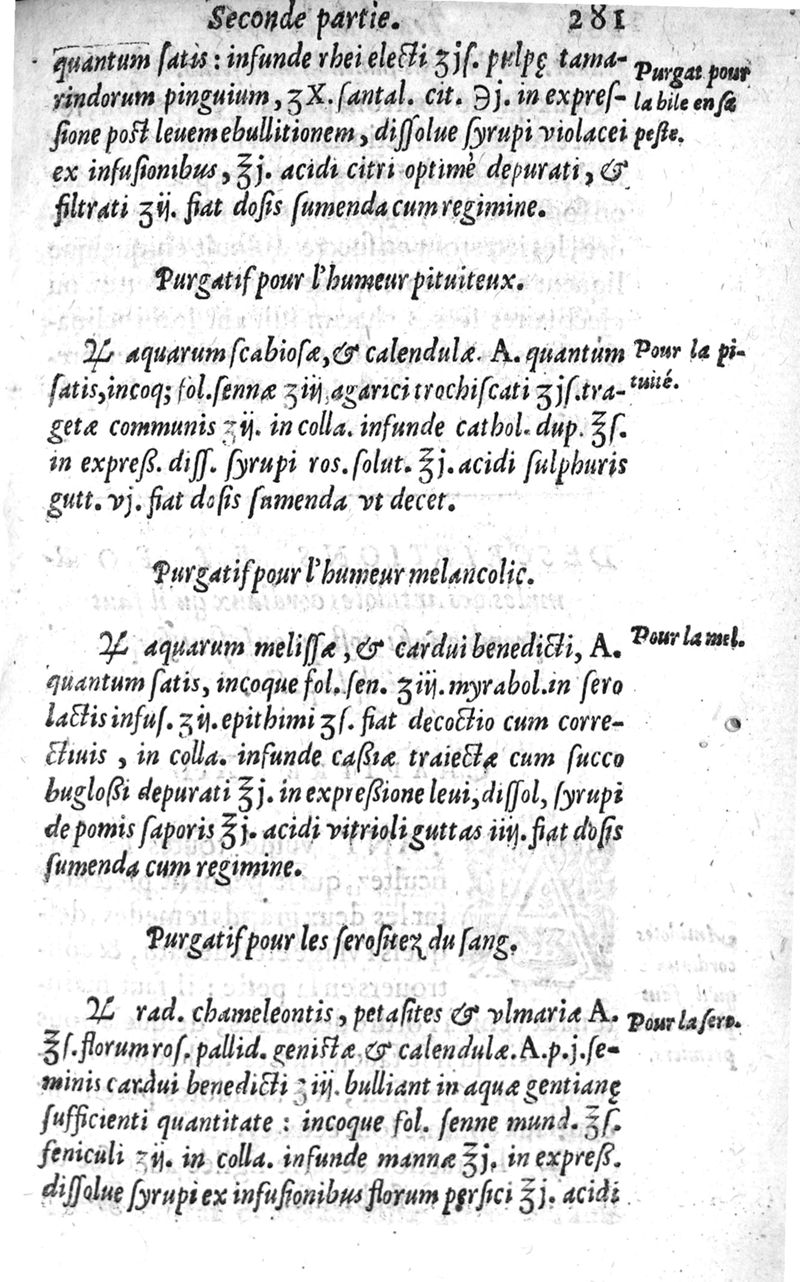 Seconde partie. 281
quantum ſatis : infunde rhei electi ʒjſ. pulpę tama-
rindorum pinguium, ʒX. ſantal. cit. ℈j. in expreſ-
ſione post leuem ebullitionem, diſſolue ſyrupi violacei
ex infuſionibus, ℥j. acidi citri optimè depurati, &
filtrati ʒij. fiat doſis ſumenda cum regimine.
Purgat pour
la bile en ſa
peſte.
Purgatif pour l'humeur pituiteux.
♃ aquarum ſcabioſæ, & calendulæ. A. quantum
ſatis, incoq; fol. ſennæ ʒiij agarici trochiſcati ʒjſ. tra-
getæ communis ʒij. in colla. infunde cathol. dup. ℥ſ.
in expreß. diſſ. ſyrupi roſ. ſolut. ℥j. acidi ſulphuris
gutt. vj. fiat doſis ſumenda vt decet.
Pour la pi-
tuité.
Purgatif pour l'humeur melancolic.
♃ aquarum meliſſæ, & cardui benedicti, A.
quantum ſatis, incoque fol. ſen. ʒiij. myrabol. in ſero
lactis infuſ. ʒij. epithimi ʒſ. fiat decoctio cum corre-
ctiuis , in colla. infunde caßiæ traiectæ cum ſucco
bugloßi depurati ℥j. in expreßione leui, diſſol, ſyrupi
de pomis ſaporis ℥j. acidi vitrioli guttas iiij. fiat doſis
ſumenda cum regimine.
Pour la mel.
Purgatif pour les ſeroſitez du ſang.
♃ rad. chameleontis, petaſites & vlmariæ A.
℥ſ. florum roſ. pallid. geniſtæ & calendulæ. A. p. j. ſe-
minis cardui benedicti ʒiij. bulliant in aquæ gentianę
ſufficienti quantitate : incoque fol. ſenne mund. ℥ſ.
feniculi ʒij. in colla. infunde mannæ ℥j. in expreß.
diſſolue ſyrupi ex infuſionibus florum perſici ℥j. acidi
Pour la ſero.